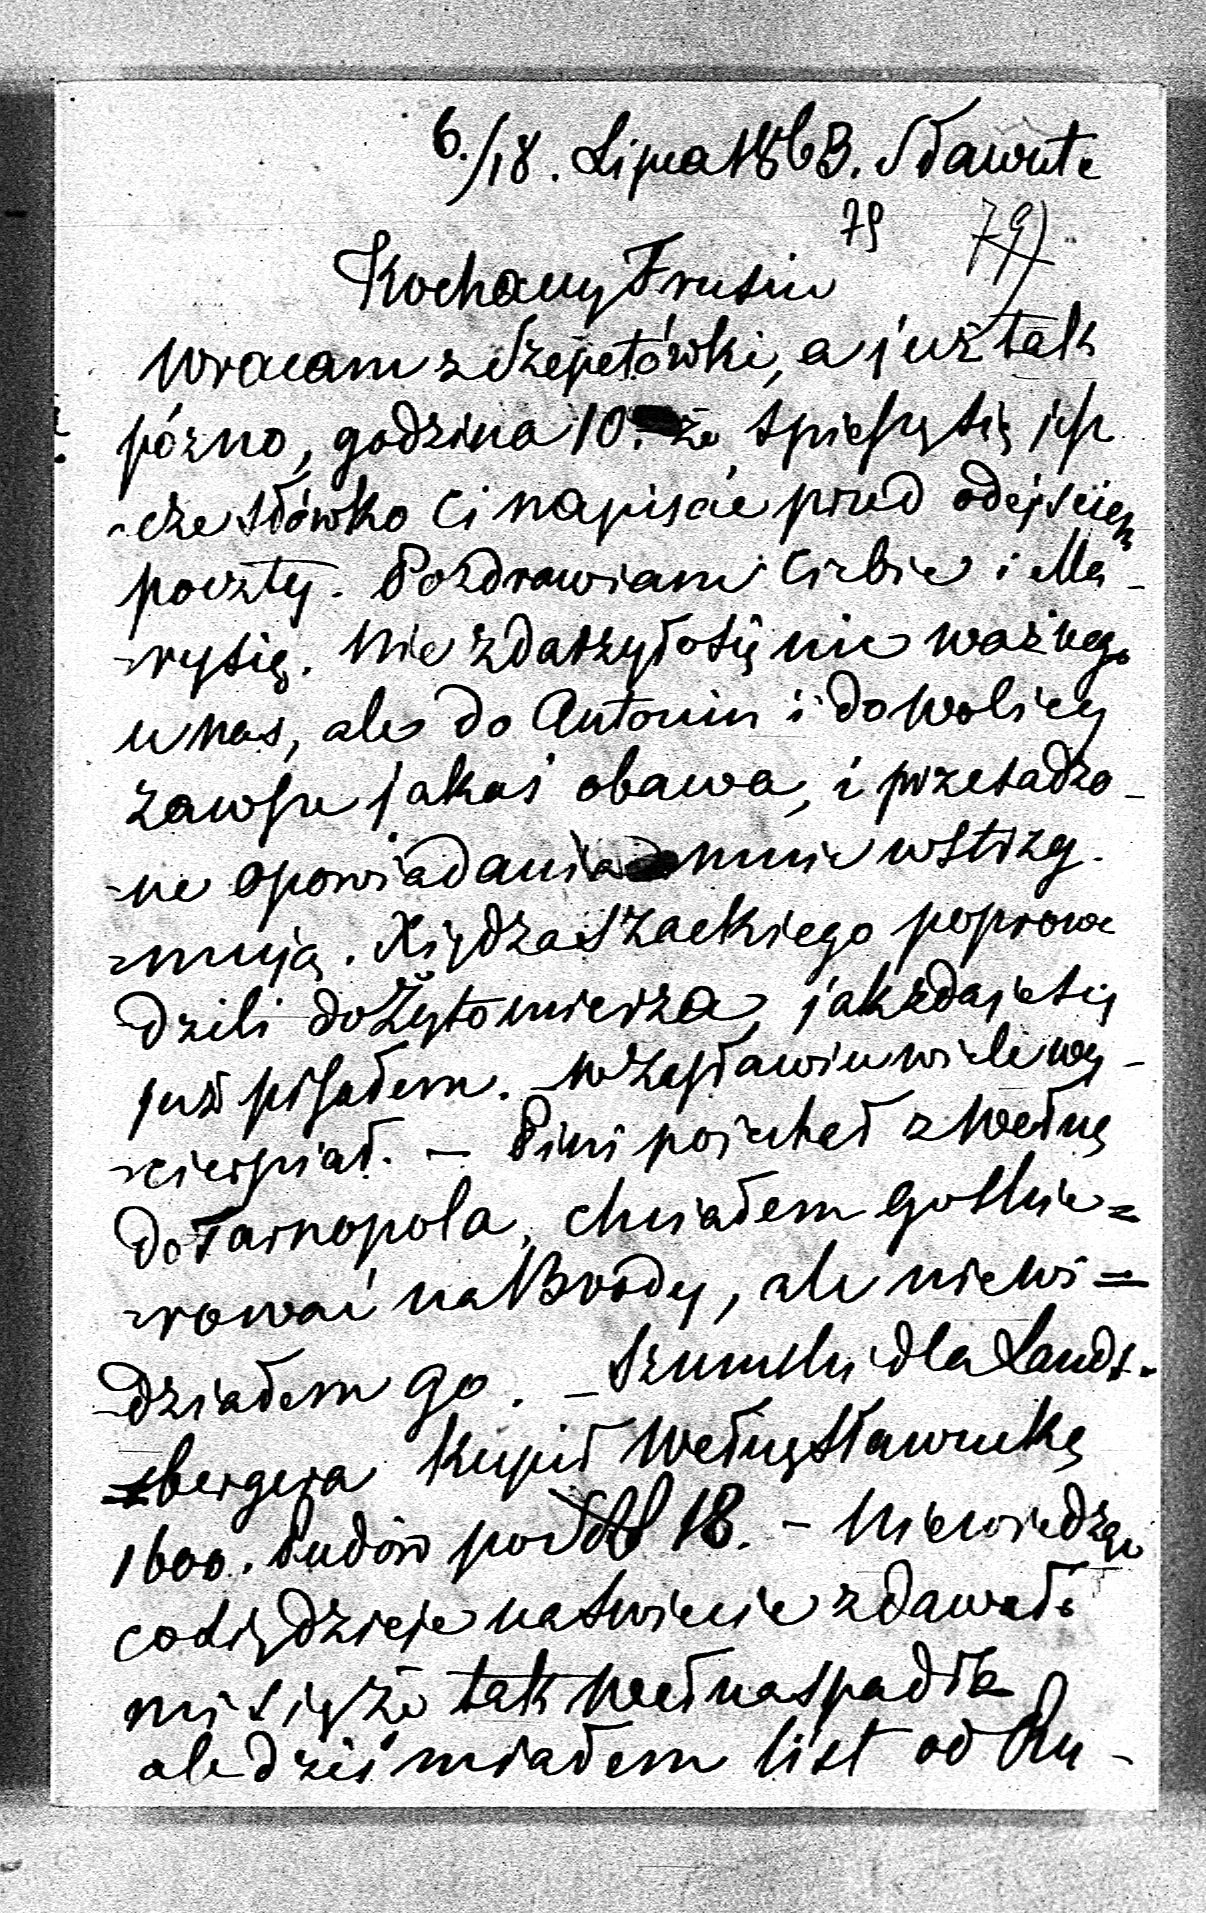 6./18. Lipca 1863. Sławuta
79 79)
Kochany Frusiu
Wracam z Szepetówki, a już tak
pózno, godzina 10. że spieszę się jesz
-cze słówko Ci napisać przed odejściem
poczty. Pozdrawiam Ciebie i Ma-
-rysię. Nie zdarzyło się nic ważnego
u nas, ale do Antonin i do Wolicy
zawsze jakaś obawa, i przesadzo-
-ne opowiadania mnie wstrzy-
-mują. Xiędza Szackiego poprowa
dzili do Żytomierza, jak zdaje się
już pisałem. - W Zasławiu wiele wy-
-cierpiał. - Pini pojechał z wełną
do Tarnopola, chciałem go skie=
-rować na Brody, ale nie wi=
-działem go. - Szumski dla Lands-
-bergera kupił wełnę sławucką
1600. pudów po 18. - Nie wiedząc
co się dzieje na świecie zdawało
mi się że tak wełna spadła
ale dziś miałem list od Ru-